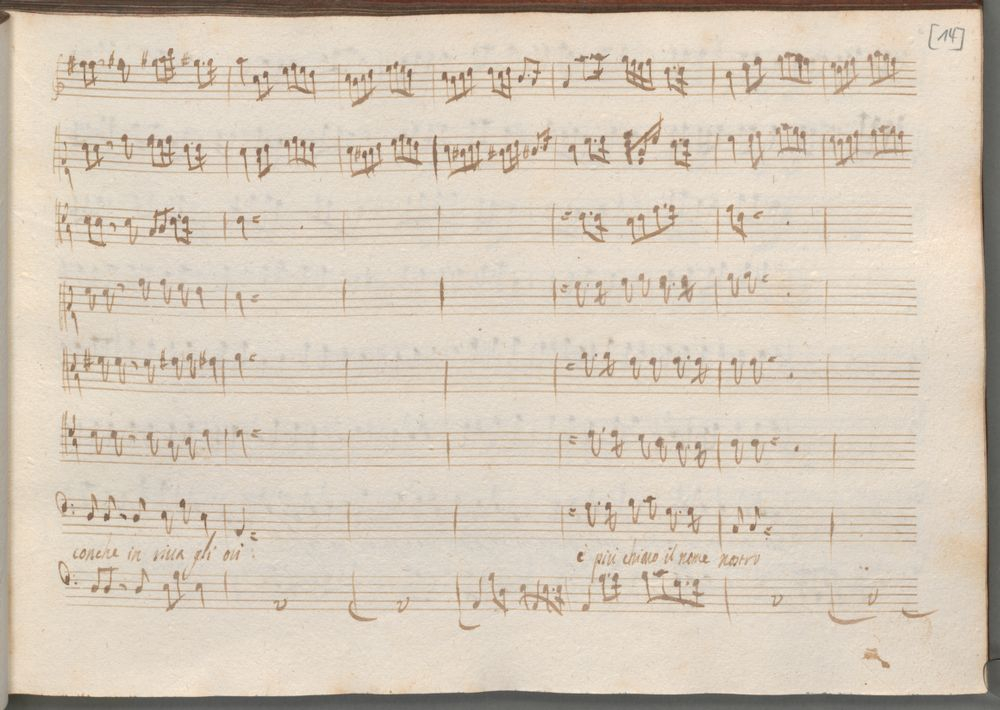 [14]
conche in riva gli
è più chiaro il nome nostro